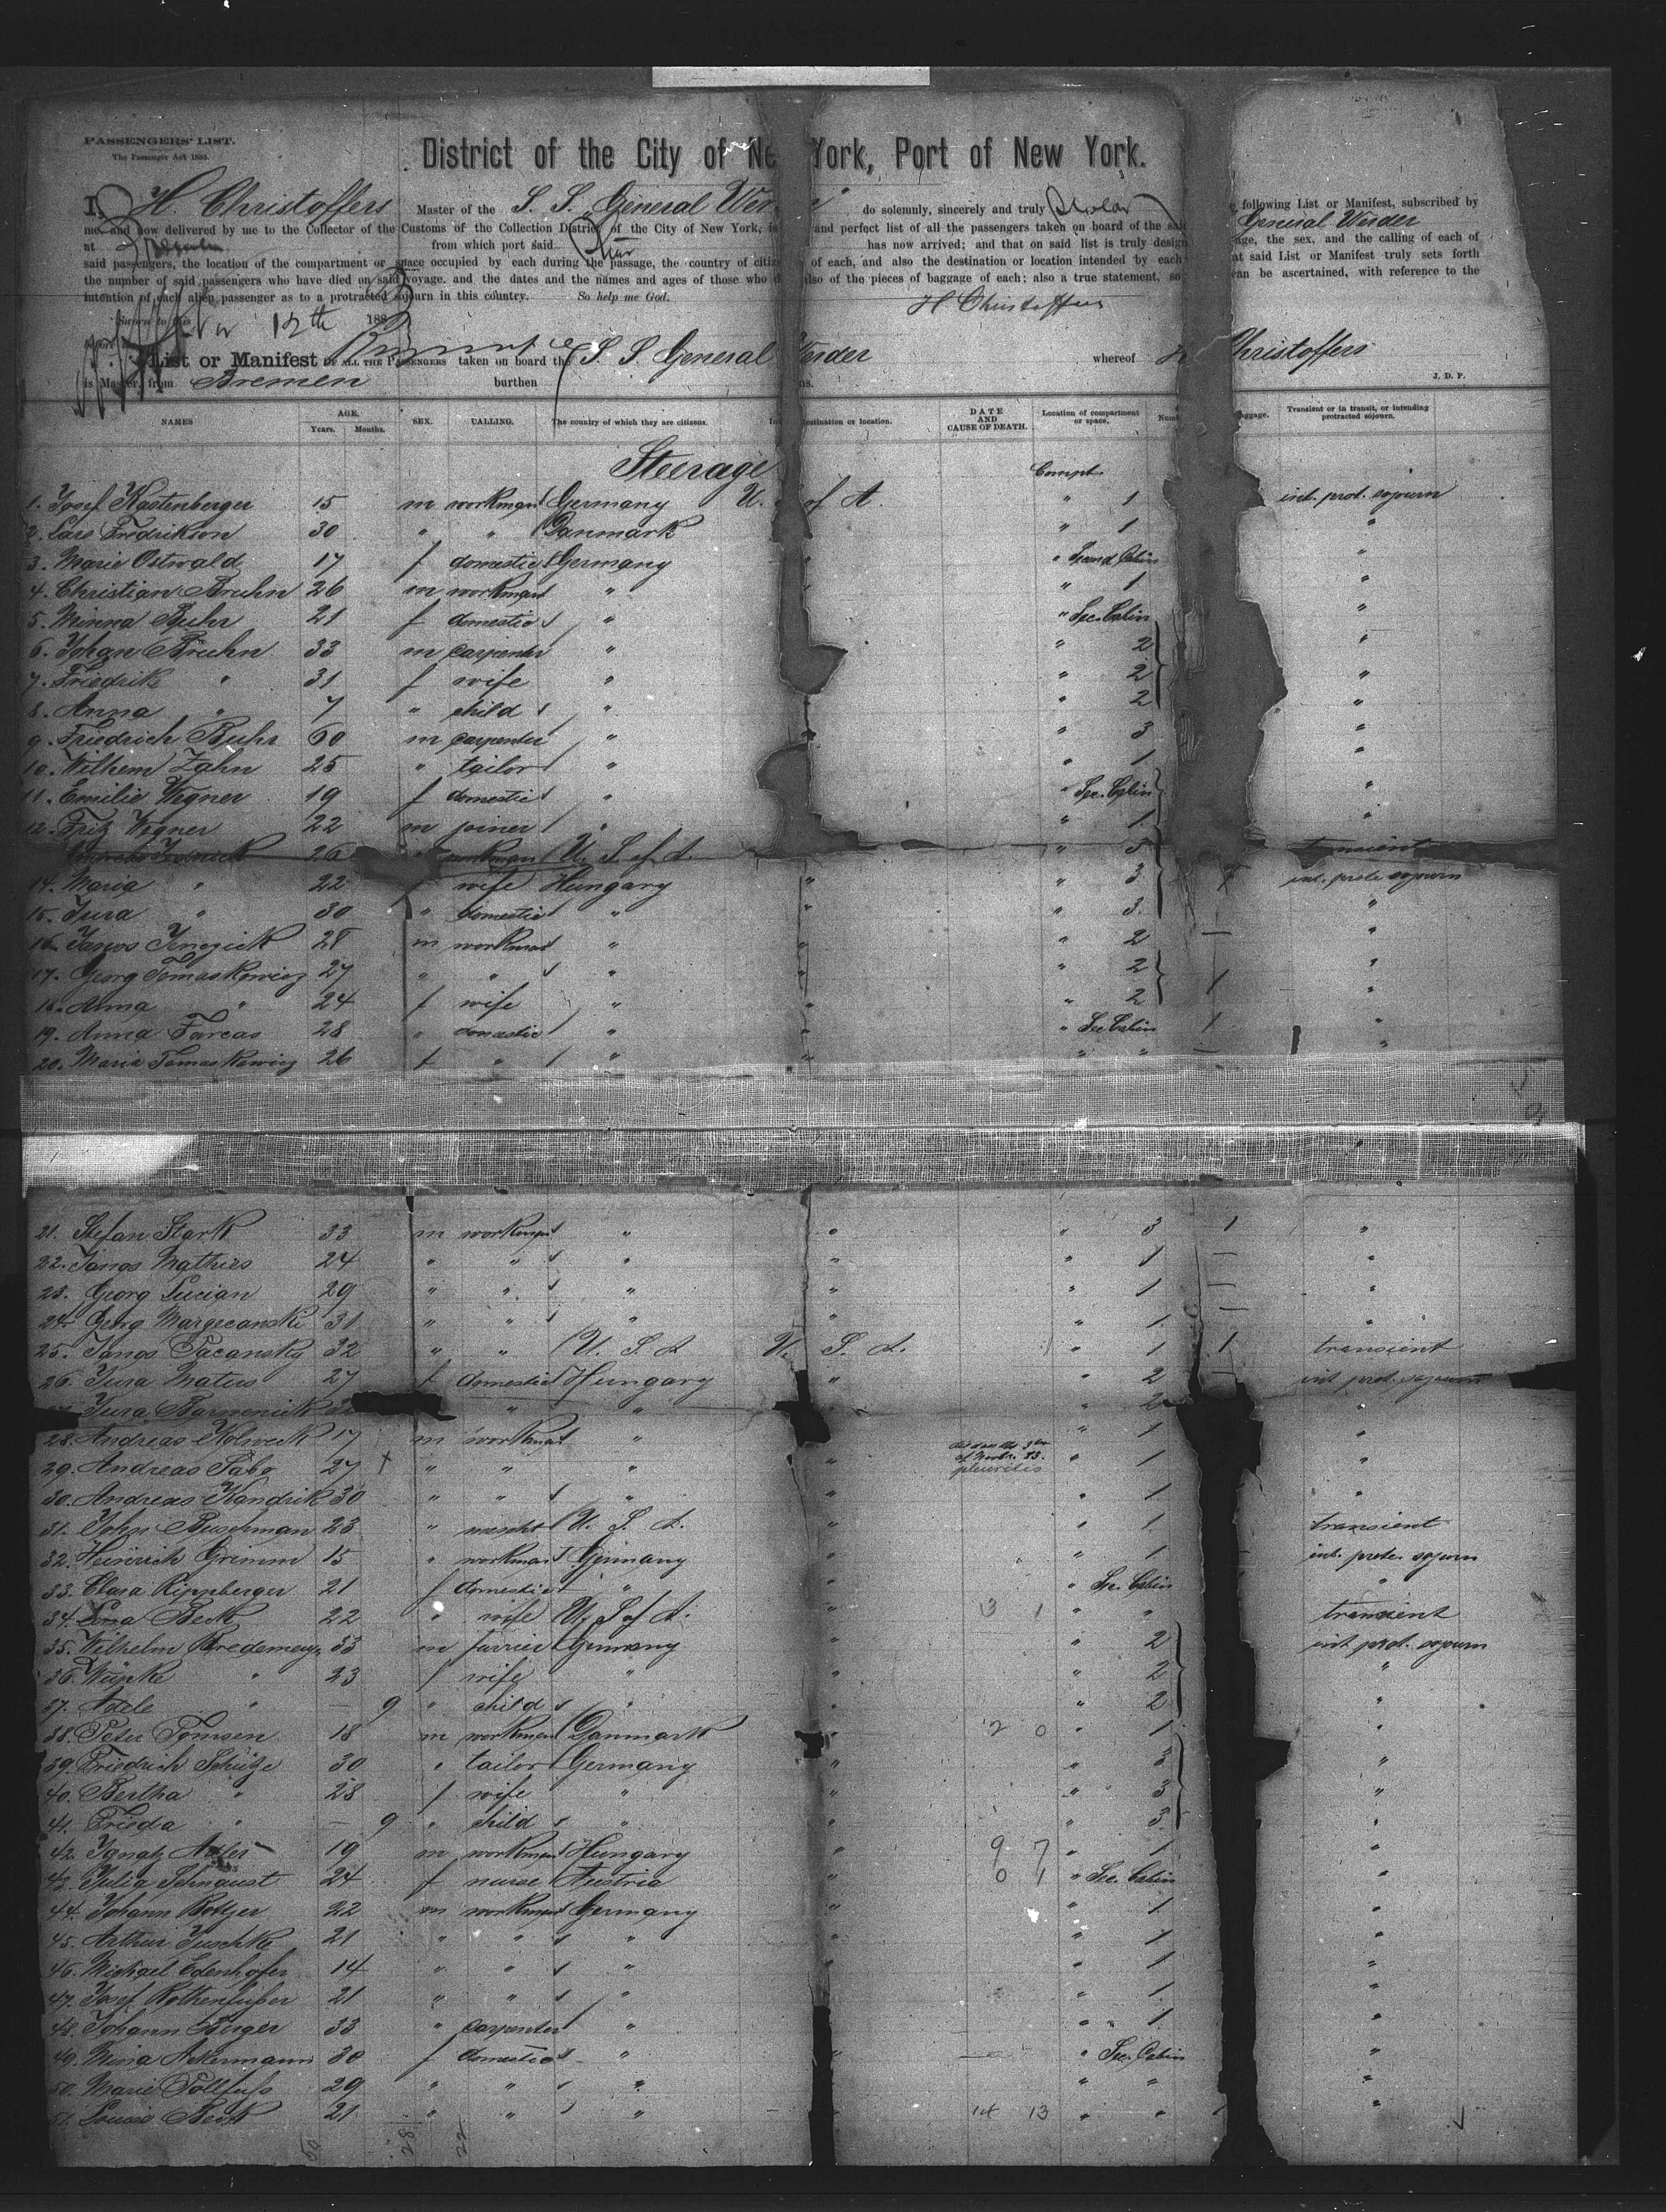 PASSENGERS' LIST.
The Passenger Act 1882.
District of the City of New York, Port of New York.
I, H. Christoffers Master of the S. S. "General Wer do solemnly, sincerely and truly following List or Manifest, subscribed by
me and now delivered by me to the Collector of the Customs of the Collection District of the City of New York, is and perfect list of all the passengers taken on board of the said General Werder
at Bremen from which port said has now arrived; and that on said list is truly design age, the sex, and the calling of each of
said passengers, the location of the compartment or space occupied by each during the passage, the country of citize of each, and also the destination or location intended by each at said List or Manifest truly sets forth
the number of said passengers who have died on said voyage, and the dates and the names and ages of those who d also of the pieces of baggage of each; also a true statement, so can be ascertained, with reference to the
intention of each alien passenger as to a protracted sojourn in this country. So help me God. H Christoffers
Sworn to this 12th 188
List or Manifest OF ALL THE PASSENGERS taken on board the S. S. General Werder whereof Christoffers
is Master, from Bremen burthen ns. J. D. P.
NAMES AGE. Years. Months. SEX. CALLING. The country of which they are citizens. In estination or location. DATE AND CAUSE OF DEATH. Location of compartment or space. Num aggage. Transient or in transit, or intending protracted sojourn.
Steerage Compt.
1. Josef Kastenberger 15 m workman Germany U. of A. " 1 int. prot. sojourn
2. Lars Fredrikson 30 " " Danmark " 1 "
3. Marie Ostwald 17 f domestic Germany " " Second Cabin "
4. Christian Bruhn 26 m workman " " 1 "
5. Minna Buhr 21 f domestic " " Sec. Cabin "
6. Johan Bruhn 33 m carpenter " " 2 "
7. Friedrike " 31 f wife " " 2 "
8. Anna " 7 " child " " 2 "
9. Friedrich Buhr 60 m carpenter " " 3 "
10. Wilhem Zahn 25 " tailor " " 1 "
11. Emilie Wegner 19 f domestic " " Sec. Cabin "
12. Fritz Wegner 22 m joiner " " 1 "
26 " workman U. S. of A. " 3 transient
14. Maria " 22 f wife Hungary " " 3 int. prote sojourn
15. Jura " 30 " domestic " " " 3 "
16. 28 m workman " " " 2 — "
17. Georg Tomaskowicz 27 " " " " " 2 "
18. Anna " 24 f wife " " " 2 1 "
19. Anna Farcas 28 " domestic " " " Sec Cabin 1 "
20. Maria Tomaskowicz 26 f " " " " " — "
21. Stefan Stark 33 m workman " " " 3 1 "
22. Janos Mathies 24 " " " " " 1 — "
23. Georg Lucian 29 " " " " " 1 — "
24. Georg Margecanski 31 " " " " " 1 — "
25. Janos Pacansky 32 " " U. S. A U. S. A. " 1 1 transient
26. Jura Matus 27 f domestic Hungary " " 2 — int prot. sojourn
Jura " " " 2 "
28. Andreas Kolweck 17 m workman " " 1 "
29. Andreas Sabo 27 + " " " " died on the 3ten of Novbr. 83. pleuritis " 1 "
30. Andreas Kandrik 30 " " " " " 1 "
31. John Buschman 23 " mercht U. S. A. " " 1 transient
32. Heinrich Grimm 15 " workman Germany " " 1 int. prote. sojourn
33. Clara Rippberger 21 f domestic " " " Sec. Cabin "
34. Lina Beck 22 " wife U. S of A. " 3 1 " " transient
35. Wilhelm Bredemeyr 33 m furrier Germany " " 2 int prot. sojourn
36. 23 f wife " " " 2 "
37. Adele " — 9 " child " " " 2 "
38. Peter Tomsen 18 m workman Danmark " 2 0 " 1 "
39. Friedrich Schütze 30 " tailor Germany " " 3 "
40. Bertha " 28 f wife " " " 3 "
41. Frieda " — 9 " child " " " 3 "
42. Ignatz 19 m workman Hungary " 9 7 " 1 "
43. Julia 24 f nurse Austria " 0 1 " Sec. Cabin "
44. Johann Bottger 22 m workman Germany " " 1 "
45. Arthur Juschke 21 " " " " " 1 "
46. Michael Edenhofer 14 " " " " " 1 "
47. Josef Rothenfußer 21 " " " " " 1 "
48. Johann Berger 33 " carpenter " " " 1 "
49. Mina Ackermann 30 f domestic " " " Sec. Cabin "
50. Marie Tollfuss 29 " " " " " "
51. Louise Beck 21 " " " 14 13 " " "
50 28 22